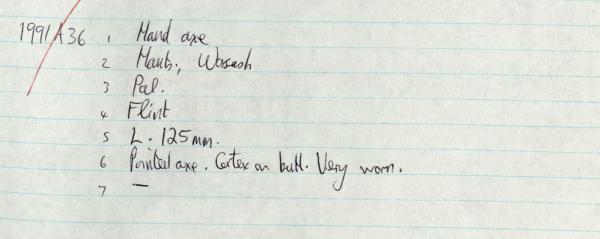 1991/A36 1 Hand axe
2 Hants; Warsash
3 Pal.
4 Flint
5 L. 125mm.
6 Pointed axe. Cortex on butt. Very worn.
7 —